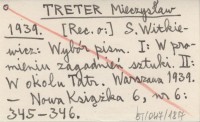 TRETER Mieczysław
1939. [Rec. o:] S. Witkie-
wicz: Wybór pism. I: W pro-
mieniu zagadnień sztuki. II:
W okolu Tatr. Warszawa 1939.
– Nowa Książka 6, nr 6:
345–346.